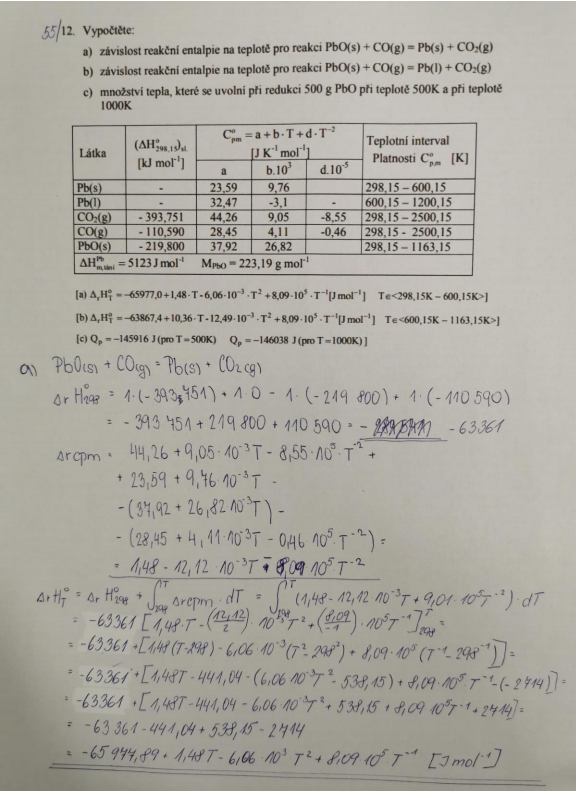 55/12. Vypočtěte:
a) závislost reakční entalpie na teplotě pro reakci PbO(s) + CO(g) = Pb(s) + CO₂(g)
b) závislost reakční entalpie na teplotě pro reakci PbO(s) + CO(g) = Pb(l) + CO₂(g)
c) množství tepla, které se uvolní při redukci 500 g PbO při teplotě 500K a při teplotě
1000K
Látka (ΔH°298,15)sl. [kJ mol⁻¹] C°pm = a + b·T + d·T⁻² [J K⁻¹ mol⁻¹] Teplotní interval Platnosti C°p,m [K]
a b.10³ d.10⁻⁵
Pb(s) - 23,59 9,76 298,15 – 600,15
Pb(l) - 32,47 -3,1 - 600,15 – 1200,15
CO₂(g) - 393,751 44,26 9,05 -8,55 298,15 – 2500,15
CO(g) - 110,590 28,45 4,11 -0,46 298,15 - 2500,15
PbO(s) - 219,800 37,92 26,82 298,15 – 1163,15
ΔH^Pb m,tání = 5123 J mol⁻¹ M_PbO = 223,19 g mol⁻¹
[a) ΔrH°T = –65977,0 + 1,48·T - 6,06·10⁻³·T² + 8,09·10⁵·T⁻¹[J mol⁻¹] T∈<298,15K – 600,15K>]
[b) ΔrH°T = –63867,4 + 10,36·T - 12,49·10⁻³·T² + 8,09·10⁵·T⁻¹[J mol⁻¹] T∈<600,15K – 1163,15K>]
[c) Qp = –145916 J (pro T = 500K) Qp = –146038 J (pro T = 1000K) ]
a) PbO(s) + CO(g) = Pb(s) + CO₂(g)
Δr H°298 = 1·(-393,751) + 1·0 - 1·(-219 800) + 1·(-110 590)
= - 393 751 + 219 800 + 110 590 = - 63361
Δrcpm = 44,26 + 9,05·10⁻³T - 8,55·10⁵·T⁻² +
+ 23,59 + 9,76·10⁻³T -
- (37,92 + 26,82 10⁻³T) -
- (28,45 + 4,11·10⁻³T - 0,46 10⁵·T⁻²) =
= 1,48 - 12,12·10⁻³T - 8,09 10⁵T⁻²
Δr H°T = Δr H°298 + ∫₂₉₈ᵀ Δrcpm · dT = ∫₂₉₈ᵀ (1,48 - 12,12 10⁻³T + 9,01·10⁵T⁻²)·dT
= -63361 [1,48·T - (12,12/2)·10⁻³T² + (8,09/-1)·10⁵T⁻¹]ᵀ₂₉₈ =
= -63361 + [1,48(T-298) - 6,06·10⁻³(T² - 298²) + 8,09·10⁵(T⁻¹ - 298⁻¹)] =
= -63361 + [1,48T - 441,04 - (6,06 10⁻³T² - 538,15) + 8,09·10⁵·T⁻¹ - (-2714)] =
= -63361 + [1,48T - 441,04 - 6,06 10⁻³T² + 538,15 + 8,09 10⁵T⁻¹ + 2714] =
= -63 361 - 441,04 + 538,15 - 2714
= -65 977,89 + 1,48T - 6,06 10³ T² + 8,09 10⁵ T⁻¹ [J mol⁻¹]